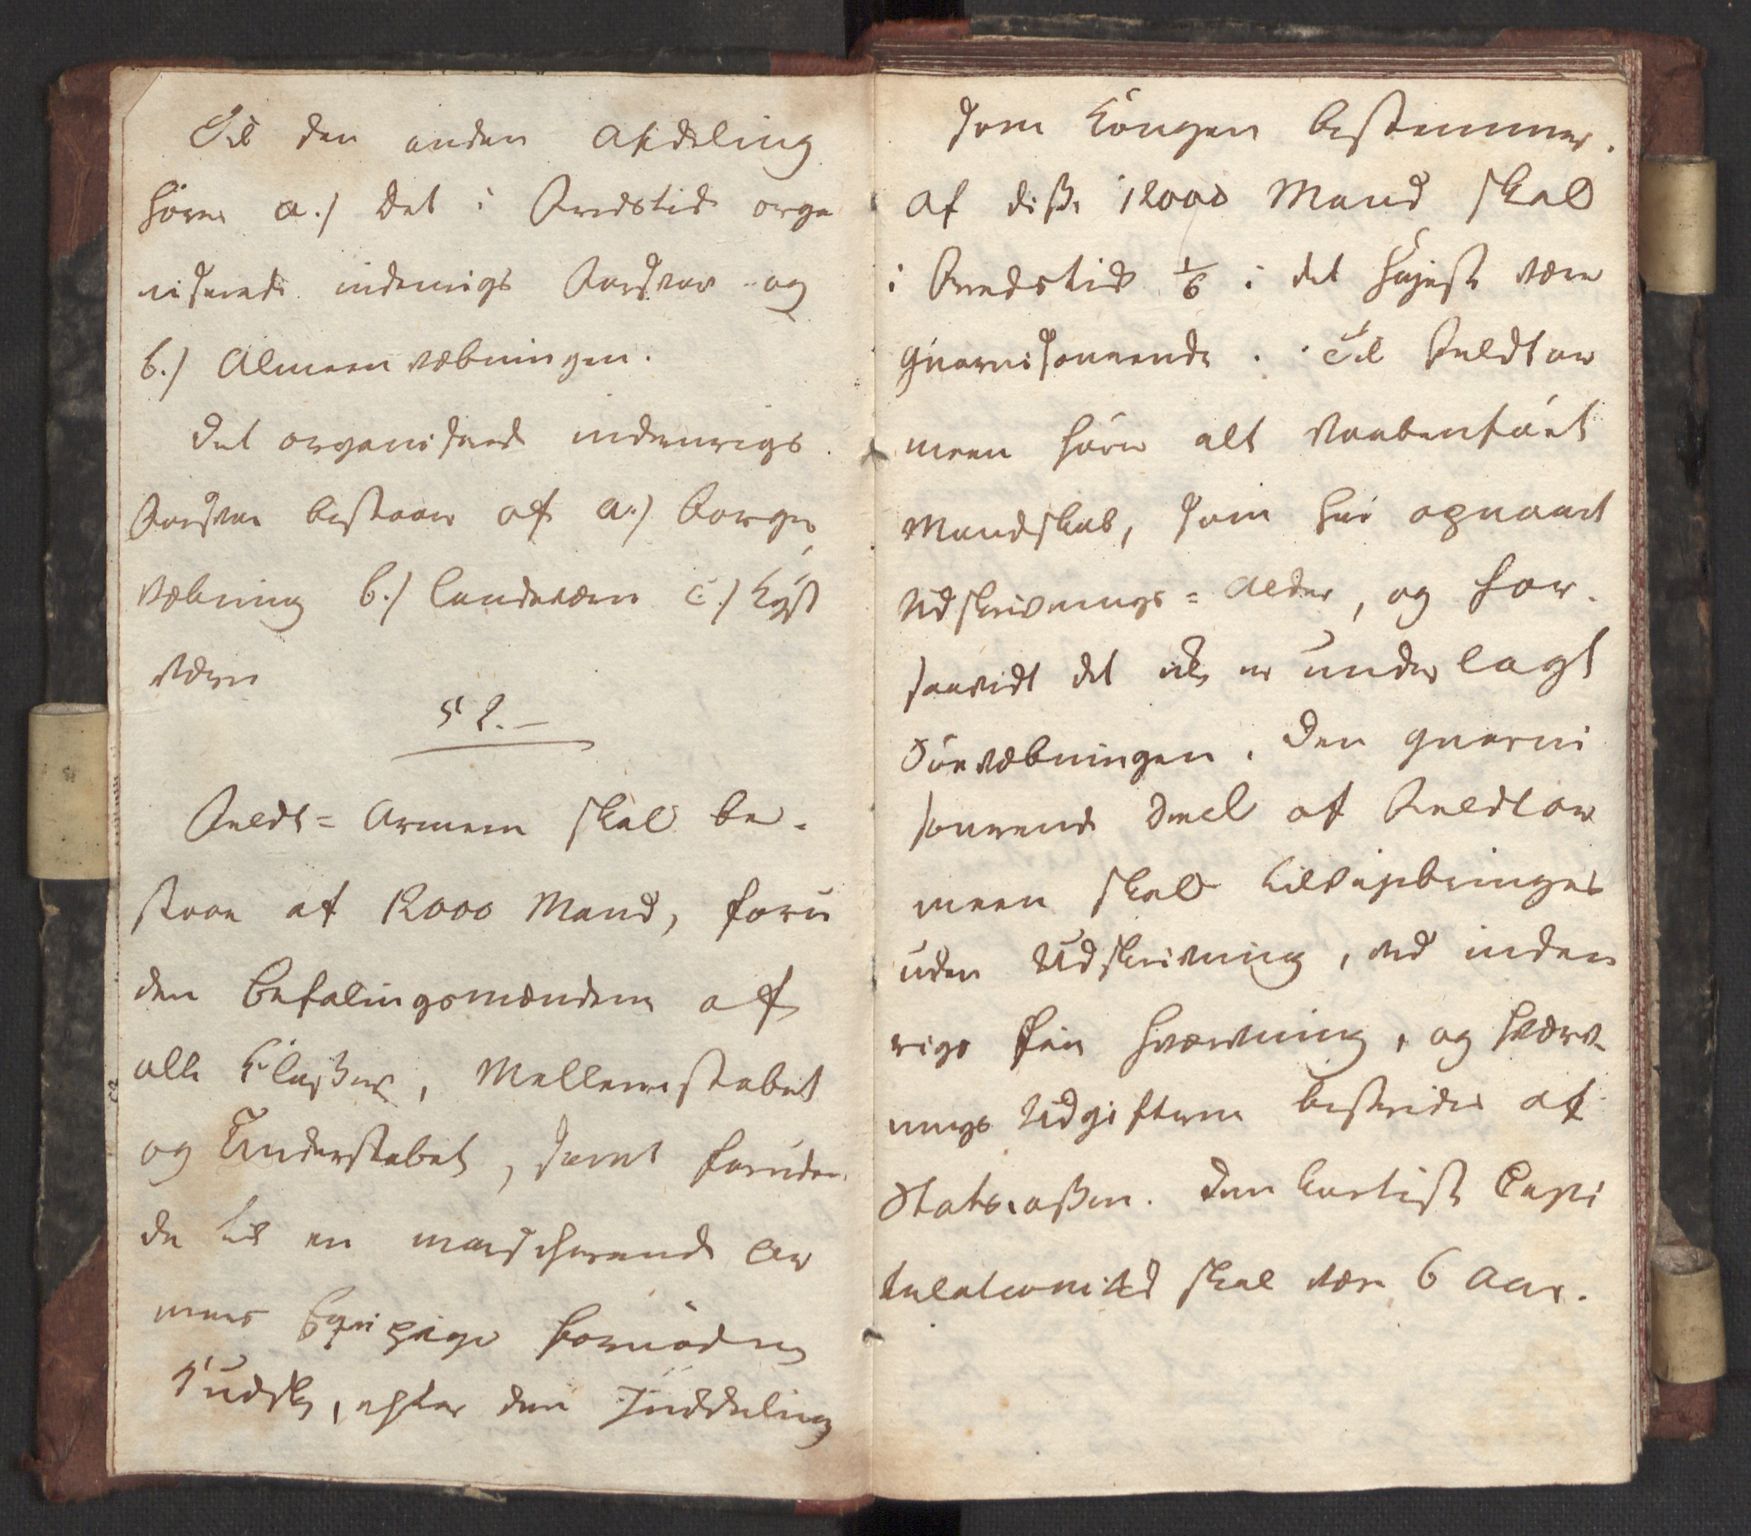 Til den anden Afdeling
hører a.) Det i Fredstid orga
niserede indenrigs Forsvar og
b.) Almeenvæbningen.
Det organiserede indenrigs
Forsvar bestaaer af a.) Borger
væbning b.) Landeværn c.) Kyst
værn
§ 2.
Feldt=Armeen skal be-
staae af 12000 Mand, foru
den Befalingsmændene af
alle Klasser, Mellemstabet
og Understabet, samt foruden
de til en marscherende Ar
mees Eqvipage fornødne
Kudske, efter den Inddeling
som Kongen bestemmer.
Af disse 12000 Mand skal
i Fredstid 1/6 i det højeste være
gvarnisonerende. Til Feldtar
meen hører alt vaabenført
Mandskab, som har opnaaet
Udskrivnings=Alder, og for-
saavidt det ikke er underlagt
Søevæbningen. Den gvarni
sonerende Deel af Feldtar
meen skal tilvejebringes
uden Udskrivning, ved inden
rigs frie Hværvning, og Hværv-
nings Udgifterne bestrides af
Statscassen. Den korteste Capi
tulationstid skal være 6 Aar.